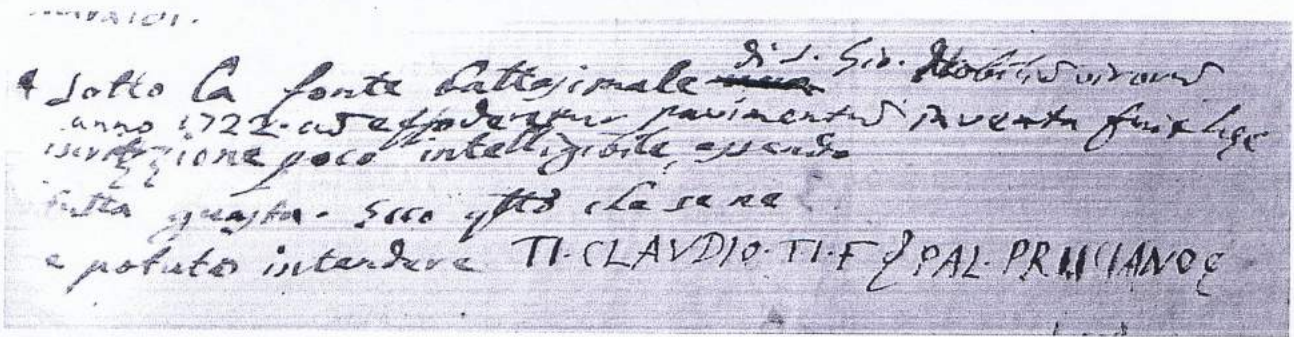 4 Sotto la fonte battesimale di S. Gio. Nobiliũ virorũ
anno 1722. cũ effoderetur pavimentũ inventa fuit hęc
inscrizzione poco intelligibile, essendo
tutta guasta. Ecco qtto che se ne
e potuto intendere TI·CLAVDIO·TI·F PAL·PRISCIANO